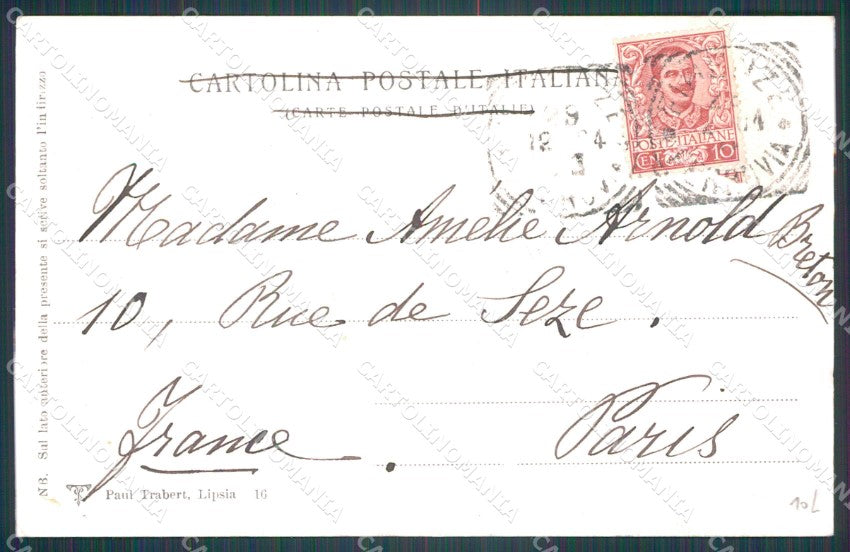 CARTOLINA POSTALE ITALIANA
(CARTE POSTALE D'ITALIE)
POSTE·ITALIANE
CENT. 10
Madame Amélie Arnold Breton
10, Rue de Seze.
France.
Paris
NB. Sul lato anteriore della presente si scrive soltanto l'indirizzo
Paul Trabert, Lipsia 16
10L
CARTOLINOMANIA